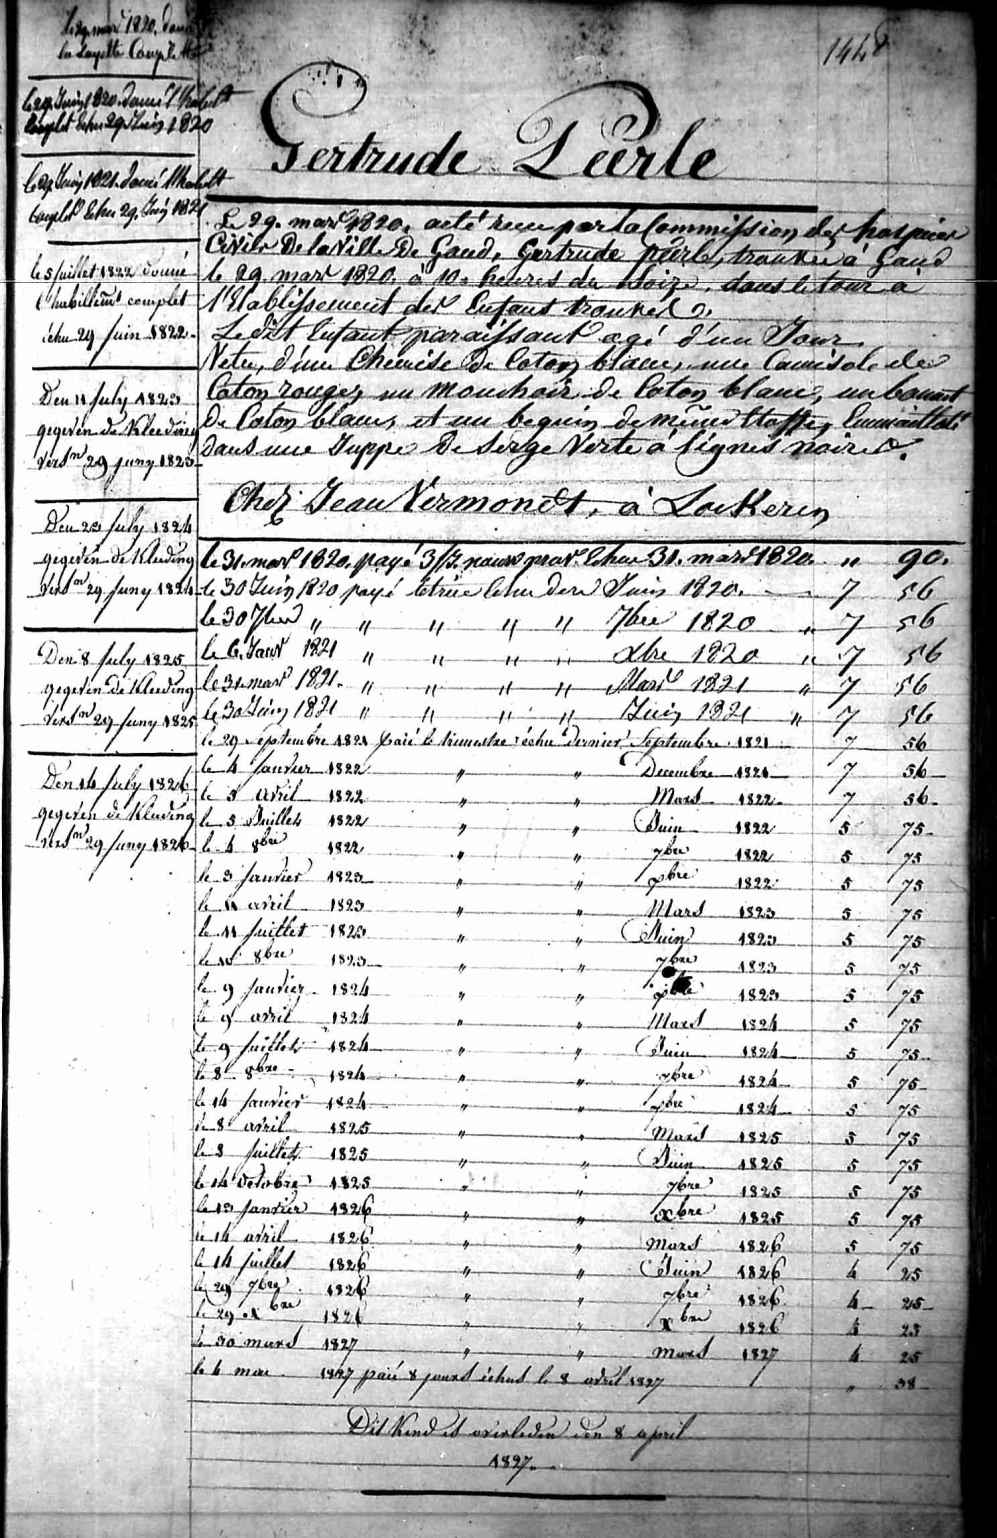 le 29 mars 1820. donné
la Layette Complette
le 29 Juin 1820. donné l'habillt
Complet Echu 29 Juin 1820
le 29 Juin 1821. donné l'habillt
Complet Echu 29. Juin 1821
le 5 juillet 1822 donné
l'habillemt complet
échu 29 juin 1822.
Den 11 july 1823
gegeven de Kleeding
versn 29 juny 1823
Den 23 july 1824
gegeven de Kleeding
versn 29 juny 1824
Den 8 july 1825
gegeven de Kleeding
versn 29 juny 1825
Den 14 july 1826
gegeven de Kleeding
versn 29 juny 1826
Gertrude Péerle
Le 29. mars 1820. acté reçu par la Commission des hospices
Civils De la Ville De Gand, Gertrude péerle, trouvée à Gand
le 29 mars 1820 à 10. heures du Soir, dans le tour à
l'Etablissement des Enfans trouvés.
Ledit Enfant paraissant agé d'un Jour
Vetu, d'une Chemise De Coton blanc, une Camisole de
Coton rouge, un mouchoir de Coton blanc, un bonnet
De Coton blanc, et un beguin de même Etoffe, Emmaillotté
dans une Juppe De Serge Verte à lignes noires.
Chez Jean Vermondt, à Lokeren
le 31. mars 1820. payé 3 jrs. nourr pour Echu 31. mars 1820. " 90.
le 30 Juin 1820 payé le trime Echu dern Juin 1820. 7 56
le 30 7bre " " " " " 7bre 1820 " 7 56
le 6. Janv 1821 " " " " Xbre 1820 " 7 56
le 31. mars 1821. " " " " Mars 1821 " 7 56
le 30 Juin 1821 " " " " Juin 1821 " 7 56
le 29 Septembre 1821 paié le trimestre échu dernier Septembre 1821 7 56
le 4 janvier 1822 " " Decembre 1821 7 56
le 5 avril 1822 " " Mars 1822 7 56
le 5 Juillet 1822 " " Juin 1822 5 75
le 4 8bre 1822 " " 7bre 1822 5 75
le 3 janvier 1823 " " Xbre 1822 5 75
le 11 avril 1823 " " Mars 1823 5 75
le 11 juillet 1823 " " Juin 1823 5 75
le 10 8bre 1823 " " 7bre 1823 5 75
le 9 janvier 1824 " " Xbre 1823 5 75
le 9 avril 1824 " " Mars 1824 5 75
le 9 juillet 1824 " " Juin 1824 5 75
le 8 8bre 1824 " " 7bre 1824 5 75
le 14 janvier 1824 " " Xbre 1824 5 75
le 8 avril 1825 " " Mars 1825 5 75
le 8 juillet 1825 " " Juin 1825 5 75
le 14 Octobre 1825 " " 7bre 1825 5 75
le 13 janvier 1826 " " Xbre 1825 5 75
le 14 avril 1826 " " Mars 1826 5 75
le 14 juillet 1826 " " Juin 1826 4 25
le 29 7bre 1826 " " 7bre 1826 4 25
le 29 Xbre 1826 " " Xbre 1826 4 25
le 30 mars 1827 " " Mars 1827 4 25
le 4 mai 1827 paié 8 jours échus le 8 avril 1827 " 38
Dit Kind is overleden den 8 april
1827.